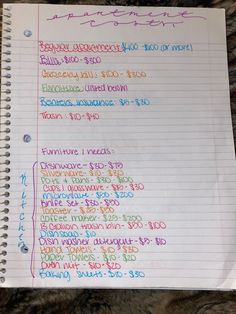 apartment costs:
Regular apartment: $400 - $600 (or more)
Bills: $100 - $300
Grocery bill: $100 - $300
Furniture: (listed below)
Renters insurance: $5 - $30
Trash: $10 - $40
Furniture I needs:
Kitchen
Dishware - $30 - $75
Silverware - $10 - $30
Pots + Pans - $50 - $100
Cups/glassware - $5 - $30
microwave - $50 - $200
Knife set - $30 - $100
Toaster - $25 - $50
Coffee maker - $25 - $200
13 Gallon trash bin - $50 - $100
Dish soap - $10
Dish washer detergent - $5 - $10
Hand Towels - $10 - $30
Paper Towels - $10 - $20
Oven mit - $10 - $20
Baking sheets - $10 - $30